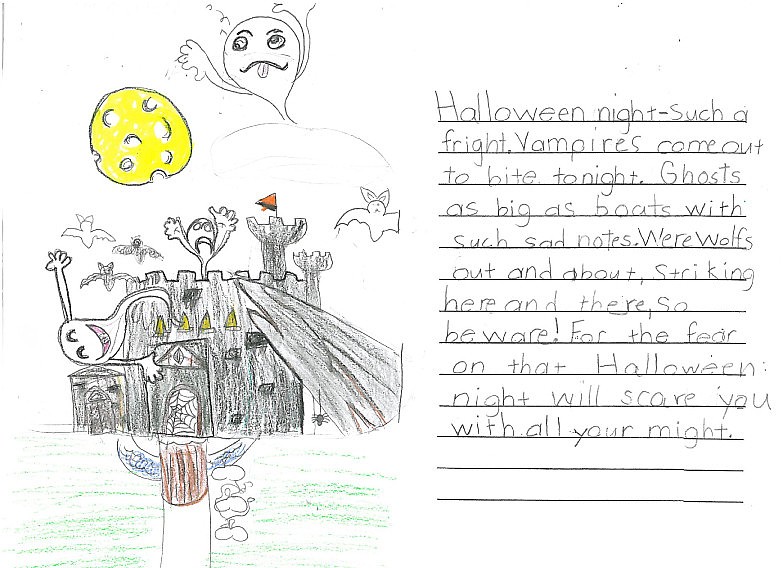 Halloween night-such a
fright. Vampires come out
to bite tonight. Ghosts
as big as boats with
such sad notes. Werewolfs
out and about, striking
here and there, so
beware! For the fear
on that Halloween:
night will scare you
with all your might.